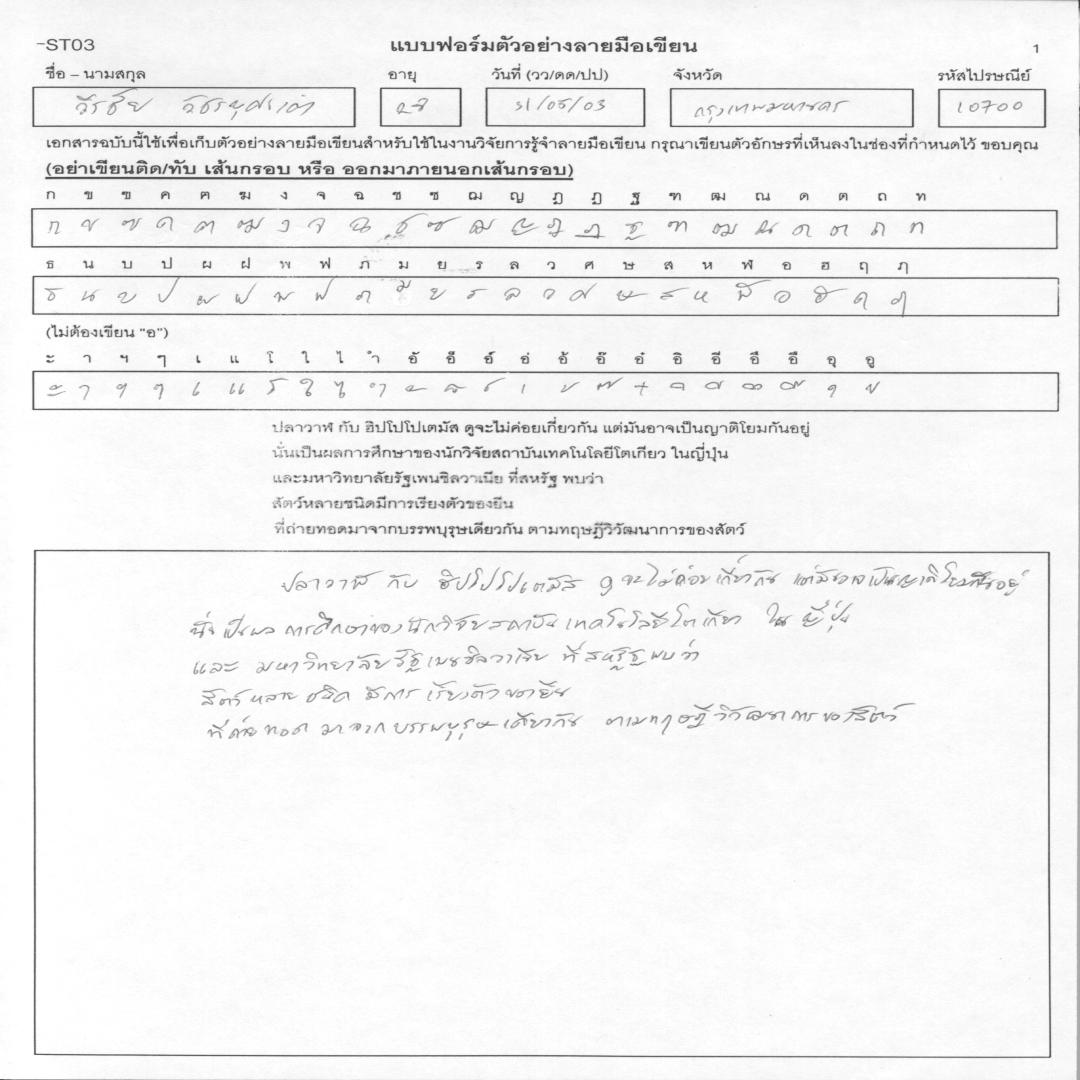 -ST03 แบบฟอร์มตัวอย่างลายมือเขียน 1
ชื่อ – นามสกุล อายุ วันที่ (วว/ดด/ปป) จังหวัด รหัสไปรษณีย์
วีรชัย 31/05/03 กรุงเทพมหานคร 10700
เอกสารฉบับนี้ใช้เพื่อเก็บตัวอย่างลายมือเขียนสำหรับใช้ในงานวิจัยการรู้จำลายมือเขียน กรุณาเขียนตัวอักษรที่เห็นลงในช่องที่กำหนดไว้ ขอบคุณ
(อย่าเขียนติด/ทับ เส้นกรอบ หรือ ออกมาภายนอกเส้นกรอบ)
ก ข ฃ ค ฅ ฆ ง จ ฉ ช ซ ฌ ญ ฎ ฏ ฐ ฑ ฒ ณ ด ต ถ ท
ก ข ฃ ค ฅ ฆ ง จ ฉ ช ซ ฌ ญ ฎ ฏ ฐ ฑ ฒ ณ ด ต ถ ท
ธ น บ ป ผ ฝ พ ฟ ภ ม ย ร ล ว ศ ษ ส ห ฬ อ ฮ ฤ ฦ
ธ น บ ป ผ ฝ พ ฟ ภ ม ย ร ล ว ศ ษ ส ห ฬ อ ฮ ฤ ฦ
(ไม่ต้องเขียน "อ")
ะ า ฯ ๆ เ แ โ ใ ไ ำ อั อ็ อ์ อ่ อ้ อ๊ อ๋ อิ อี อึ อื อุ อู
ะ า ฯ ๆ เ แ โ ใ ไ ำ ั ็ ์ ่ ้ ๊ ๋ ิ ี ึ ื ุ ู
ปลาวาฬ กับ ฮิปโปโปเตมัส ดูจะไม่ค่อยเกี่ยวกัน แต่มันอาจเป็นญาติโยมกันอยู่
นั่นเป็นผลการศึกษาของนักวิจัยสถาบันเทคโนโลยีโตเกียว ในญี่ปุ่น
และมหาวิทยาลัยรัฐเพนซิลวาเนีย ที่สหรัฐ พบว่า
สัตว์หลายชนิดมีการเรียงตัวของยีน
ที่ถ่ายทอดมาจากบรรพบุรุษเดียวกัน ตามทฤษฎีวิวัฒนาการของสัตว์
ปลาวาฬ กับ ฮิปโปโปเตมัส ดูจะไม่ค่อยเกี่ยวกัน แต่มันอาจเป็นญาติโยมกันอยู่
นั่นเป็นผล การศึกษาของนักวิจัยสถาบันเทคโนโลยีโตเกียว ในญี่ปุ่น
และ มหาวิทยาลัยรัฐเพนซิลวาเนีย ที่สหรัฐ พบว่า
สัตว์หลายชนิด มีการ เรียงตัวของยีน
ที่ถ่ายทอด มาจากบรรพบุรุษเดียวกัน ตามทฤษฎีวิวัฒนาการของสัตว์